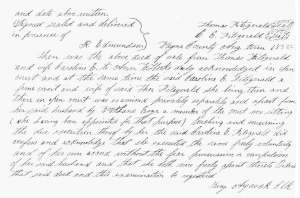 and date above written
Signed sealed and delivered } Thomas Fitzgerald (Seal)
in presence of C E Fitzgerald (Seal)
R Edmundson Wayne County Aug term 185
Then was the above deed of sale from Thomas Fitzgerald
and wife Caroline E to duly acknowledged in open
court and at the same time the said Caroline E Fitzgerald a
feme covert and wife of said Thos Fitzgerald she being then and
there in open court was examined privately separately and apart from
her said husband by a member of the court
(she having been appointed for that purpose) touching and concerning
the due execution thereof by her the said Caroline E Fitzgerald did
confess and acknowledge that she executed the same freely voluntarily
and of her own accord without the fear persuasion or compulsion
of her said husband and that she doth now freely assent thereto Ordered
that said deed and this examination be registered
Benj Aycock Clk